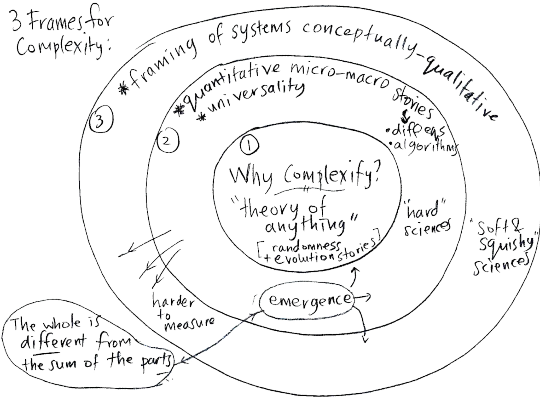 3 Frames for
Complexity:
* framing of systems conceptually-qualitative
* quantitative micro-macro stories
* universality
• diff eqns
• algorithms
3
2
1
Why Complexify?
"theory of
anything"
[randomness
+ evolution stories]
"hard"
sciences
"Soft &
squishy"
sciences
harder
to
measure
emergence
The whole is
different from
the sum of the parts